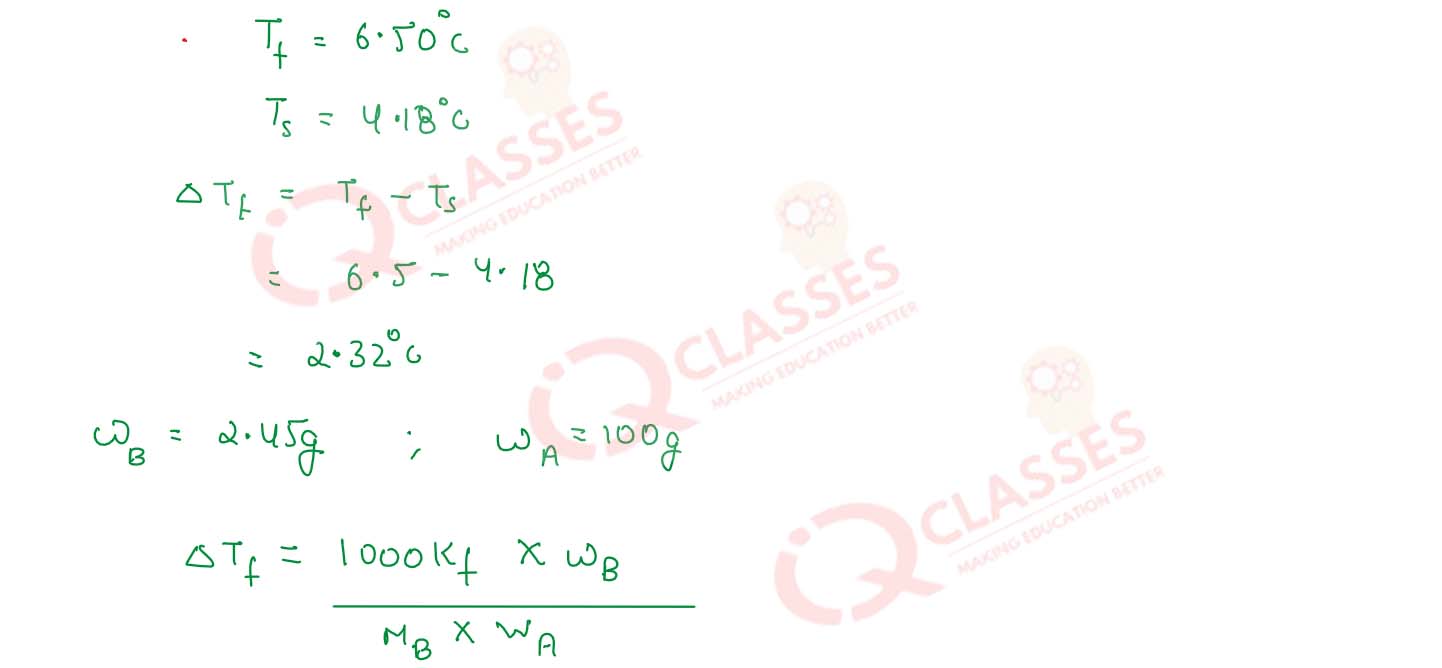 T_f = 6.50°C
T_s = 4.18°C
ΔT_f = T_f - T_s
= 6.5 - 4.18
= 2.32°C
ω_B = 2.45g ; ω_A = 100g
ΔT_f = 1000K_f × ω_B
M_B × W_A
IQ CLASSES
MAKING EDUCATION BETTER
IQ CLASSES
MAKING EDUCATION BETTER
IQ CLASSES
MAKING EDUCATION BETTER